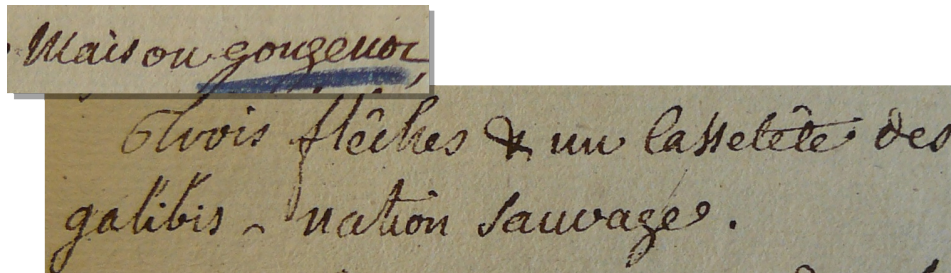 Maison gougenot
trois flêches & un Cassetête des
galibis - nation sauvage.